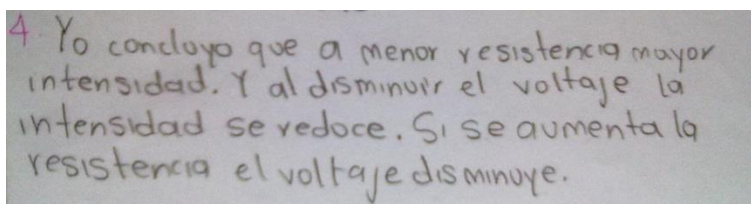 4. Yo concluyo que a menor resistencia mayor
intensidad. Y al disminuir el voltaje la
intensidad se reduce. Si se aumenta la
resistencia el voltaje disminuye.